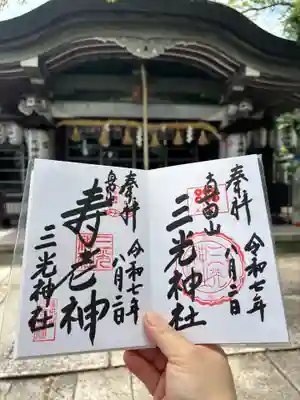 奉拝
令和七年
八月二日
真田山
三光神社
奉拝
令和七年
八月二日
寿老神
三光神社